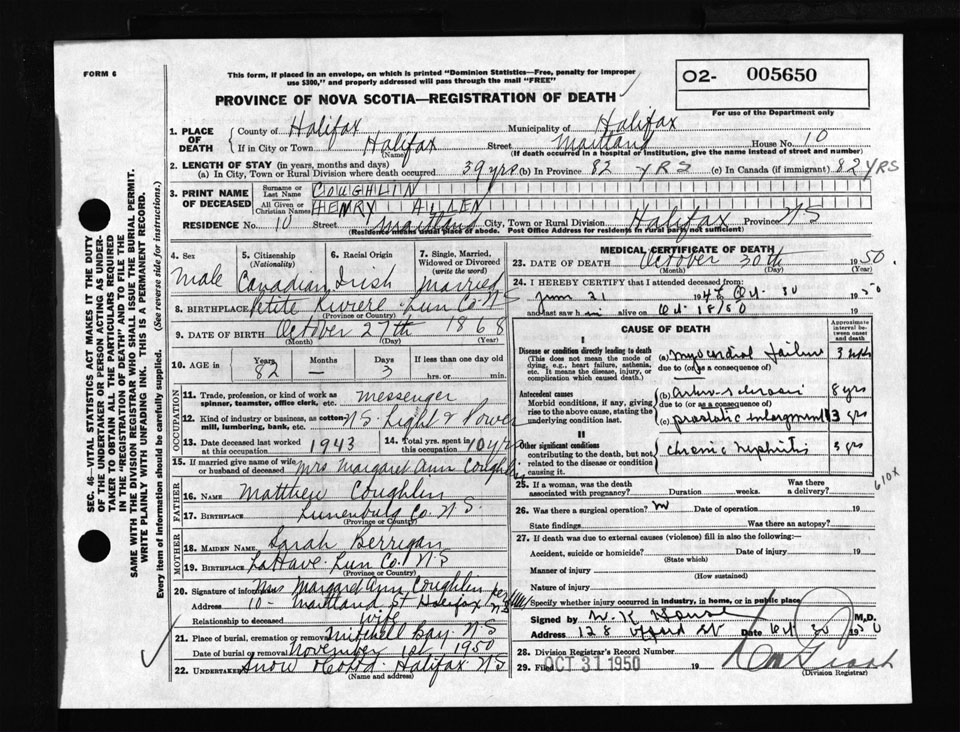 FORM 6
This form, if placed in an envelope, on which is printed "Dominion Statistics—Free, penalty for improper
use $300," and properly addressed will pass through the mail "FREE"
O2- 005650
For use of the Department only
PROVINCE OF NOVA SCOTIA—REGISTRATION OF DEATH
1. PLACE OF DEATH
County of Halifax Municipality of Halifax
If in City or Town Halifax (Name) Street Maitland House No. 10
(If death occurred in a hospital or institution, give the name instead of street and number)
2. LENGTH OF STAY (in years, months and days)
(a) In City, Town or Rural Division where death occurred 39 yrs (b) In Province 82 YRS (c) In Canada (if immigrant) 82 YRS
3. PRINT NAME OF DECEASED
Surname or Last Name COUGHLIN
All Given or Christian Names HENRY ALLEN
RESIDENCE No. 10 Street Maitland City, Town or Rural Division Halifax Province NS
(Residence means usual place of abode. Post Office Address for residents in rural parts not sufficient)
4. Sex Male
5. Citizenship (Nationality) Canadian
6. Racial Origin Irish
7. Single, Married, Widowed or Divorced (write the word) Married
8. BIRTHPLACE Petite Riviere Lun Co. NS
(Province or Country)
9. DATE OF BIRTH October 27th 1868
(Month) (Day) (Year)
10. AGE in Years 82 Months — Days 3 If less than one day old
hrs. or min.
OCCUPATION
11. Trade, profession, or kind of work as spinner, teamster, office clerk, etc. messenger
12. Kind of industry or business, as cotton-mill, lumbering, bank, etc. N.S. Light & Power
13. Date deceased last worked at this occupation 1943
14. Total yrs. spent in this occupation 40 yrs
15. If married give name of wife or husband of deceased Mrs Margaret Ann Coughlin
FATHER
16. Name Matthew Coughlin
17. Birthplace Lunenburg Co. N.S.
(Province or Country)
MOTHER
18. Maiden Name Sarah Berrigan
19. Birthplace LaHave Lun Co. N S
(Province or Country)
20. Signature of informant Mrs Margaret Ann Coughlin per
Address 10 - Maitland St Halifax NS
Relationship to deceased wife
21. Place of burial, cremation or removal Mitchell Bay. N.S
Date of burial or removal November 1st, 1950
22. Undertaker Snow & Co Ltd. Halifax NS
(Name and address)
MEDICAL CERTIFICATE OF DEATH
23. DATE OF DEATH October 30th 1950.
(Month) (Day) (Year)
24. I HEREBY CERTIFY that I attended deceased from:
June 21 Oct. 30 1950
and last saw him alive on Oct. 18/50
CAUSE OF DEATH
Approximate interval between onset and death
I
Disease or condition directly leading to death
(This does not mean the mode of dying, e.g., heart failure, asthenia, etc. It means the disease, injury, or complication which caused death.)
(a) myocardial failure
due to (or as a consequence of)
Antecedent causes
Morbid conditions, if any, giving rise to the above cause, stating the underlying condition last.
(b) arterio-sclerosis 8 yrs
due to (or as a consequence of)
(c) prostatic enlargement 3 yrs
II
Other significant conditions
contributing to the death, but not related to the disease or condition causing it.
chronic nephritis 3 yrs
610X
25. If a woman, was the death associated with pregnancy? Duration weeks. Was there a delivery?
26. Was there a surgical operation? no Date of operation 19
State findings Was there an autopsy?
27. If death was due to external causes (violence) fill in also the following:—
Accident, suicide or homicide? Date of injury 19
(State which)
Manner of injury
(How sustained)
Nature of injury
Specify whether injury occurred in industry, in home, or in public place
Signed by W. K. House M.D.
Address 128 Oxford St Date Oct 30 1950
28. Division Registrar's Record Number
29. Filed OCT 31 1950 19
(Division Registrar)
SEC. 46—VITAL STATISTICS ACT MAKES IT THE DUTY
OF THE UNDERTAKER OR PERSON ACTING AS UNDER-
TAKER TO OBTAIN ALL THE PARTICULARS REQUIRED
IN THE "REGISTRATION OF DEATH" AND TO FILE THE
SAME WITH THE DIVISION REGISTRAR WHO SHALL ISSUE THE BURIAL PERMIT.
WRITE PLAINLY WITH UNFADING INK. THIS IS A PERMANENT RECORD.
Every item of information should be carefully supplied. (See reverse side for instructions.)